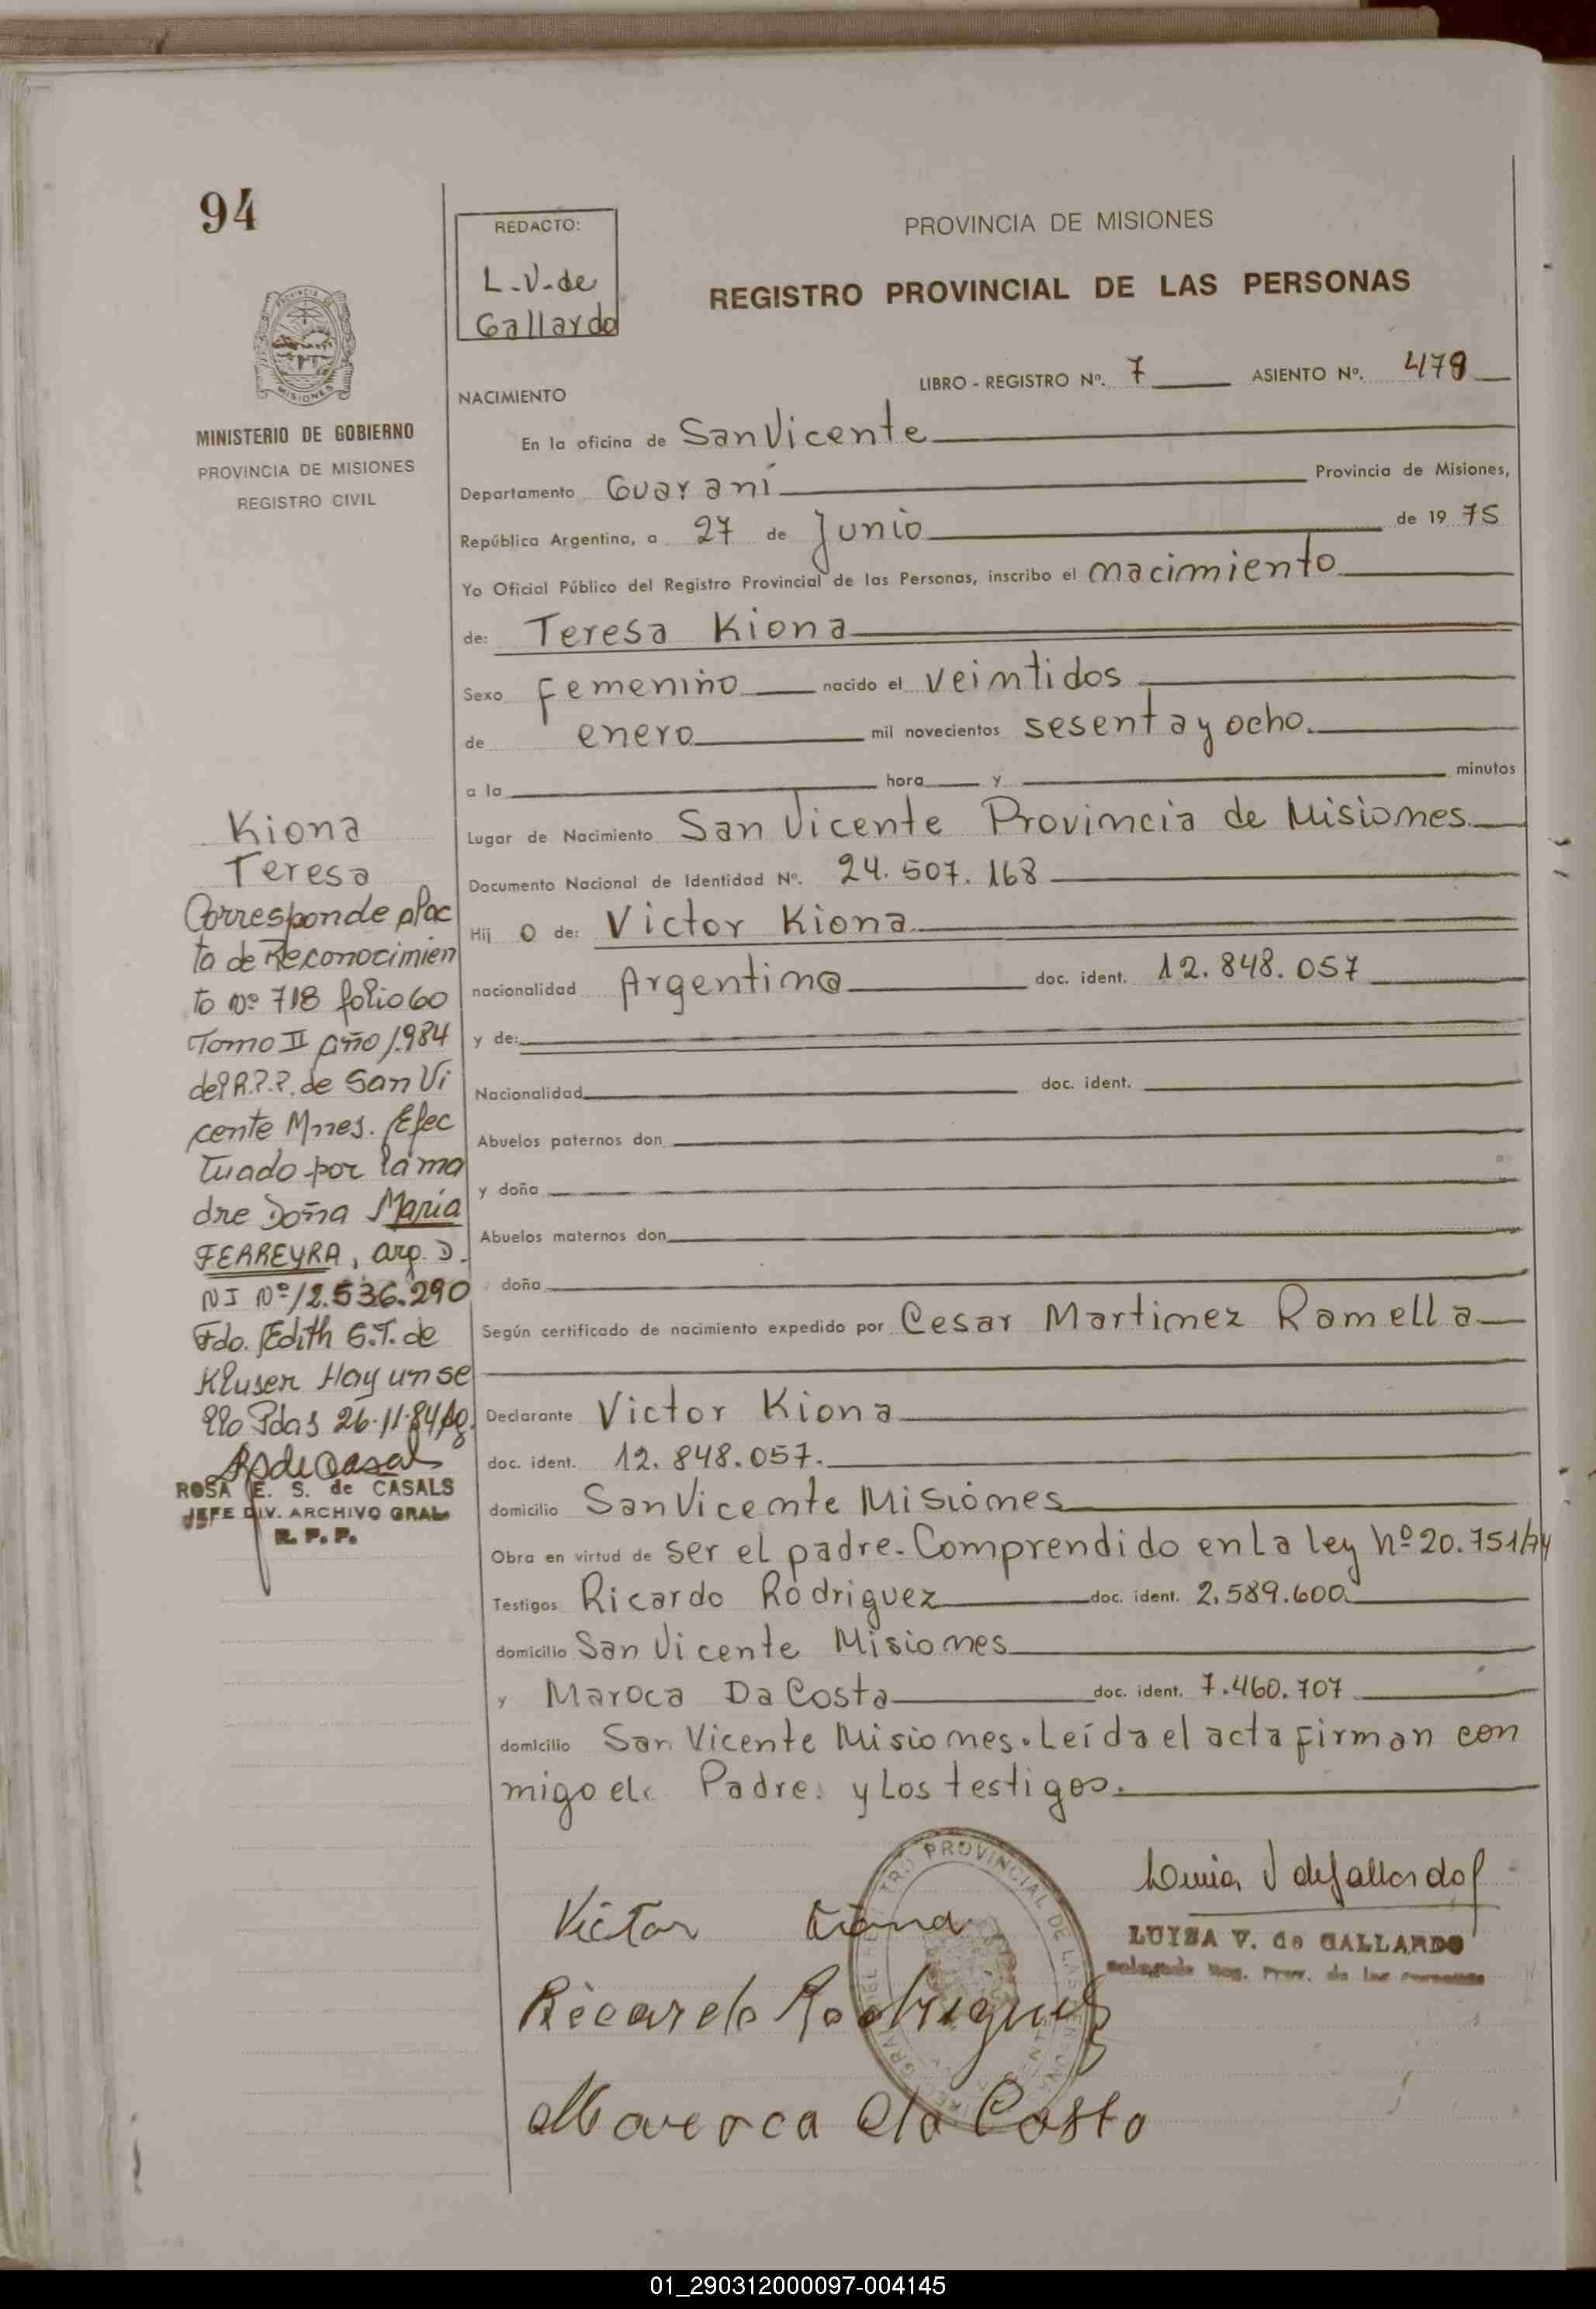 94
REDACTO:
L.V.de
Gallardo
PROVINCIA DE MISIONES
REGISTRO PROVINCIAL DE LAS PERSONAS
MINISTERIO DE GOBIERNO
PROVINCIA DE MISIONES
REGISTRO CIVIL
LIBRO - REGISTRO Nº. 7 ASIENTO Nº. 479
NACIMIENTO
En la oficina de San Vicente
Departamento Guaraní Provincia de Misiones,
República Argentina, a 27 de Junio de 1975
Yo Oficial Público del Registro Provincial de las Personas, inscribo el nacimiento
de: Teresa Kiona
Sexo femenino nacido el veintidos
de enero mil novecientos sesenta y ocho.
a la hora y minutos
Lugar de Nacimiento San Vicente Provincia de Misiones
Documento Nacional de Identidad Nº. 24.507.168
Hij o de: Victor Kiona
nacionalidad Argentin@ doc. ident. 12.848.057
y de:
Nacionalidad doc. ident.
Abuelos paternos don
y doña
Abuelos maternos don
doña
Según certificado de nacimiento expedido por Cesar Martinez Ramella
Declarante Victor Kiona
doc. ident. 12.848.057.
domicilio San Vicente Misiones
Obra en virtud de ser el padre. Comprendido en La ley Nº 20.751/74
Testigos Ricardo Rodriguez doc. ident. 2.589.600
domicilio San Vicente Misiones
y Maroca Da Costa doc. ident. 7.460.707
domicilio San Vicente Misiones. Leída el acta firman con
migo el Padre. y Los testigos.
Kiona
Teresa
Corresponde alac
ta de Reconocimien
to Nº 718 folio 60
Tomo II año 1.984
del R.P.P. de San Vi
cente Mnes. Efec
tuado por la ma
dre Doña Maria
FERREYRA, arg. D.
NI Nº 12.536.290
Fdo. Edith G.T. de
Kluser Hay un se
llo Pdas 26.11.84
ROSA E. S. de CASALS
JEFE DIV. ARCHIVO GRAL.
R. P. P.
Victor Kiona
Ricardo Rodriguez
Maroca da Costa
Luisa V de Gallardo
LUISA V. de GALLARDO
Delegada Reg. Prov. de las Personas
REGISTRO PROVINCIAL DE LAS PERSONAS
01_290312000097-004145